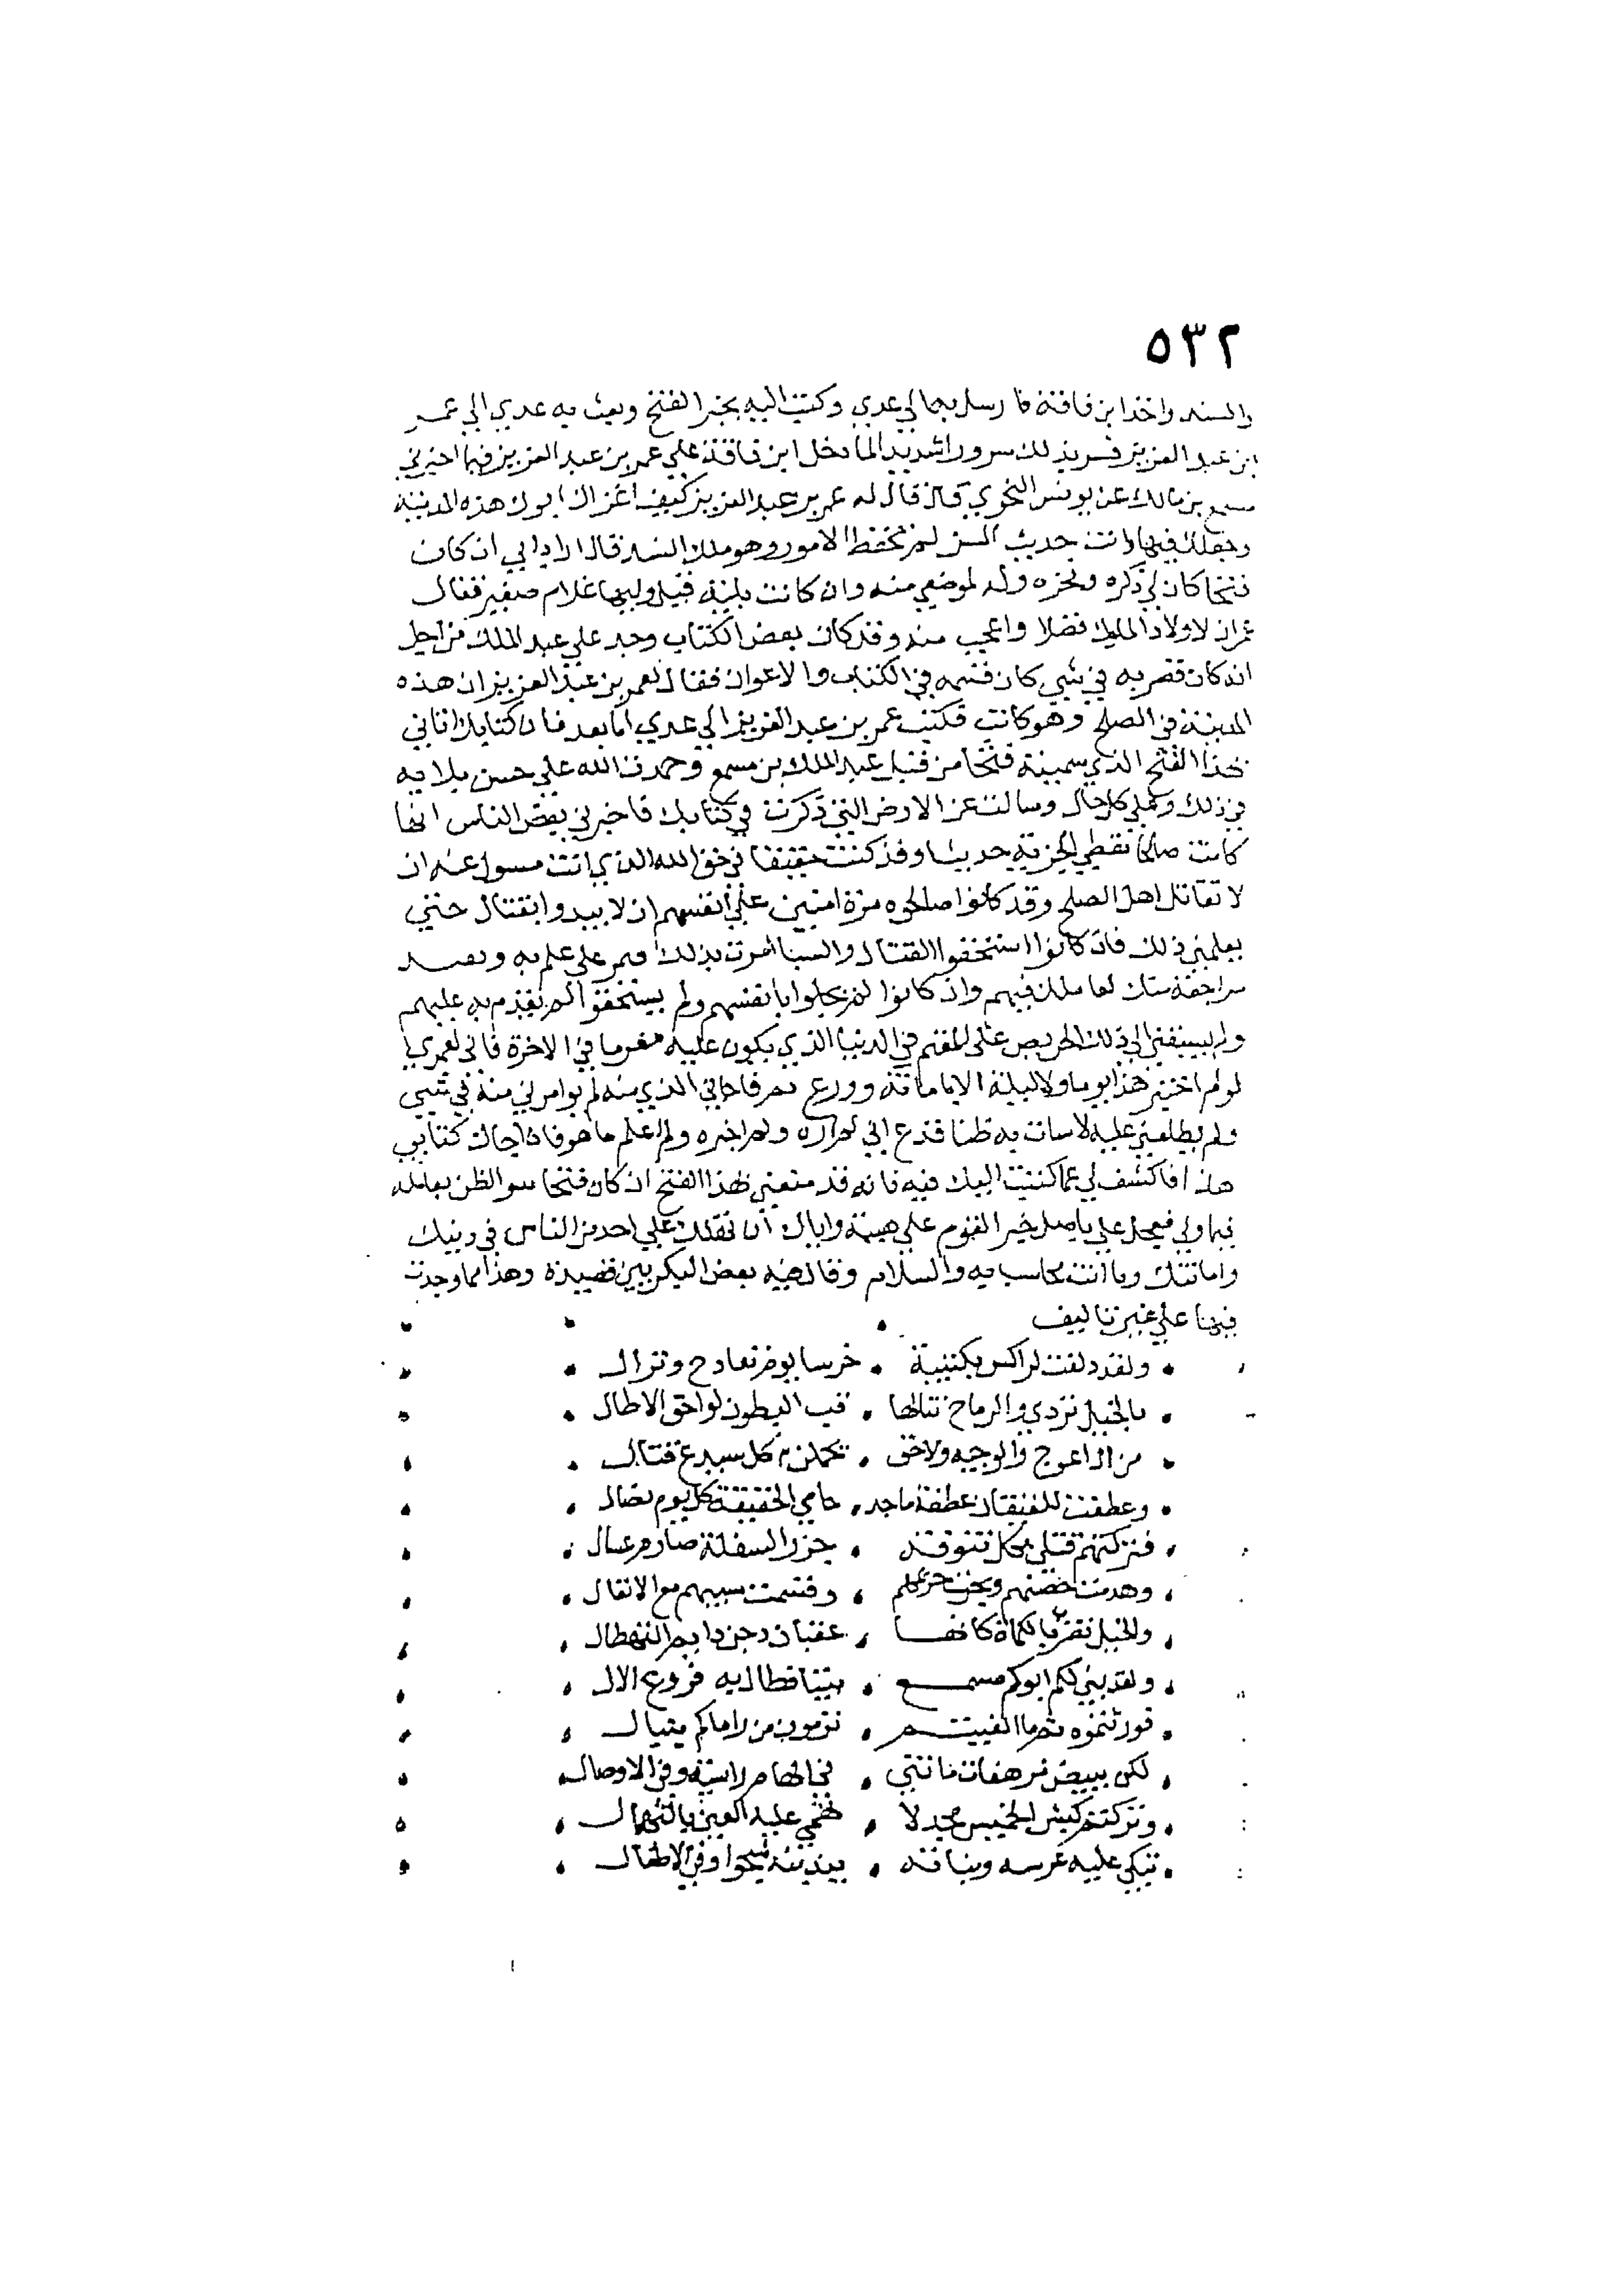 ٥٣٢
والسند واخذ ابن فاقة فارسل بها الي عدي وكتب اليه بخبر الفتح وبعث به عدي الي عمر
ابن عبد العزيز فسر بذلك سرورا شديدا لما دخل ابن فاقة علي عمر بن عبد العزيز فيما اخبرني
مسمع بن مالك عن يونس النحوي قال قال له عمر بن عبد العزيز كيف اغزاك ابوك هذه المدينة
وجعلك فيها وانت حديث السن لم تحفظ الامور وهو ملك السند قال اراد ابي ان كان
فتحا كان لي ذكره وفخره وله لموضعي منه وان كانت بلية قيل وليها غلام صغير فقال
عمر ان لاولاد الملوك فضلا واعجب منه وقد كان بعض الكتاب وجد علي عبد الملك من اجل
انه كان قصر به في شي كان قسمه في الكتاب والاعوان فقال لعمر بن عبد العزيز ان هذه
المدينة في الصلح وهو كانت فكتب عمر بن عبد العزيز الي عدي اما بعد فان كتابك اتاني
بهذا الفتح الذي سميته فتحا من قبل عبد الملك بن مسمع وحمدت الله علي حسن بلايه
في ذلك وعلي كل حال وسالت عن الارض التي ذكرت في كتابك فاخبرني بعض الناس انها
كانت صلحا تعطي الجزية حديثا وقد كنت حقيقا في حق الله الذي انت مسول عنه ان
لا تقاتل اهل الصلح وقد كانوا صالحوه مرة امنين علي انفسهم ان لا يبدوا بقتال حتي
يعلمني ذلك فان كانوا استحقوا القتال والسبا امرت بذلك علي علم به وبعد
مراجعة منك لعاملك فيهم وان كانوا لم يحلوا بانفسهم ولم يستحقوا لم تقدم به عليهم
ولم يسبقني الي ذلك الحريص علي المغنم في الدنيا الذي يكون عليه مغرما في الاخرة فاني لعمري
لو لم اختبر هذا يوما ولا ليلة الا بامانة وورع لم يوامرني منه في شي
ولم يطلعني عليه لاسات به ظنا فدع اني لم اره ولم اخبره ولم اعلم ما هو فاذا جاك كتابي
هذا فاكشف لي عما كتبت اليك فيه فانه قد منعني بهذا الفتح ان كان فتحا سو الظن بعامله
فيما ولي فعجل علي باصل خبر القوم علي هيئته واياك ان علي احد من الناس في دينك
وامانتك وما انت محاسب به والسلام وقال فيه بعض البكريين قصيدة وهذا مما وجدت
فيها علي غير تاليف
ولقد دلفت لراكس بكتيبة • خرسا يوم تعادح ونزال
بالخيل تردي والرماح تنالها • قب البطون لواحق الاطال
من ال اعوج والوجيه ولاحق • تحملن كل سميدع قتال
وعطفت للفيقان عطفة ماجد • حامي الحقيقة كل يوم نضال
فتركتهم قتلي بكل تنوفة • جزر السفلة صارم عسال
وهدمت حصنهم وبحت حريمهم • وقسمت سبيهم مع الانفال
والخيل تعثر بالكماة كانها • عقبان دجن دايم التهطال
ولقد بني لكم ابوكم مسمع • بيتا فطال به فروع الال
فورثتموه ثم ما الفيتم • ترمون من راماكم بنبال
لكن ببيض مرهفات تانتي • في الهام راسية وفي الاوصال
وتركتم كبش الخميس مجدلا • تهمي عليه العين بالتهمال
تبكي عليه عرسه وبناته • يندبنه شجوا وفي الاطلال